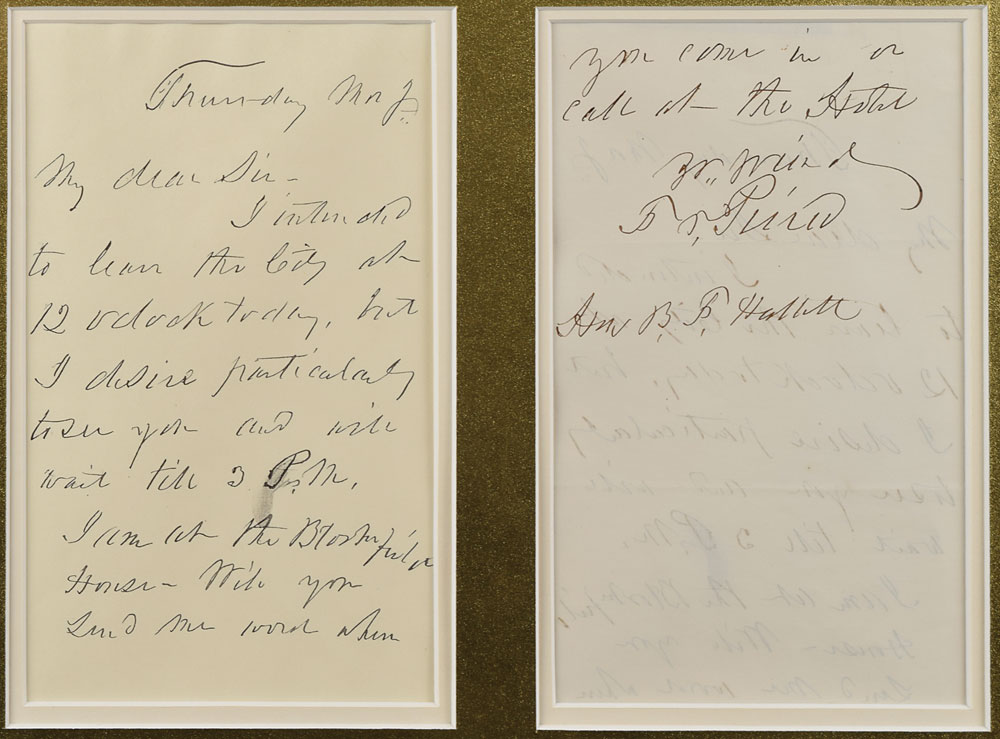 Thursday Mor'g
My dear Sir -
I intended
to leave the City at
12 oclock today, but
I desire particularly
to see you and will
wait till 3 P.M.
I am at the
House - Will you
Send me word when
you come in or
call at the Hotel
Yr. friend
Fr. Pierce
Hon B. F. Hallett